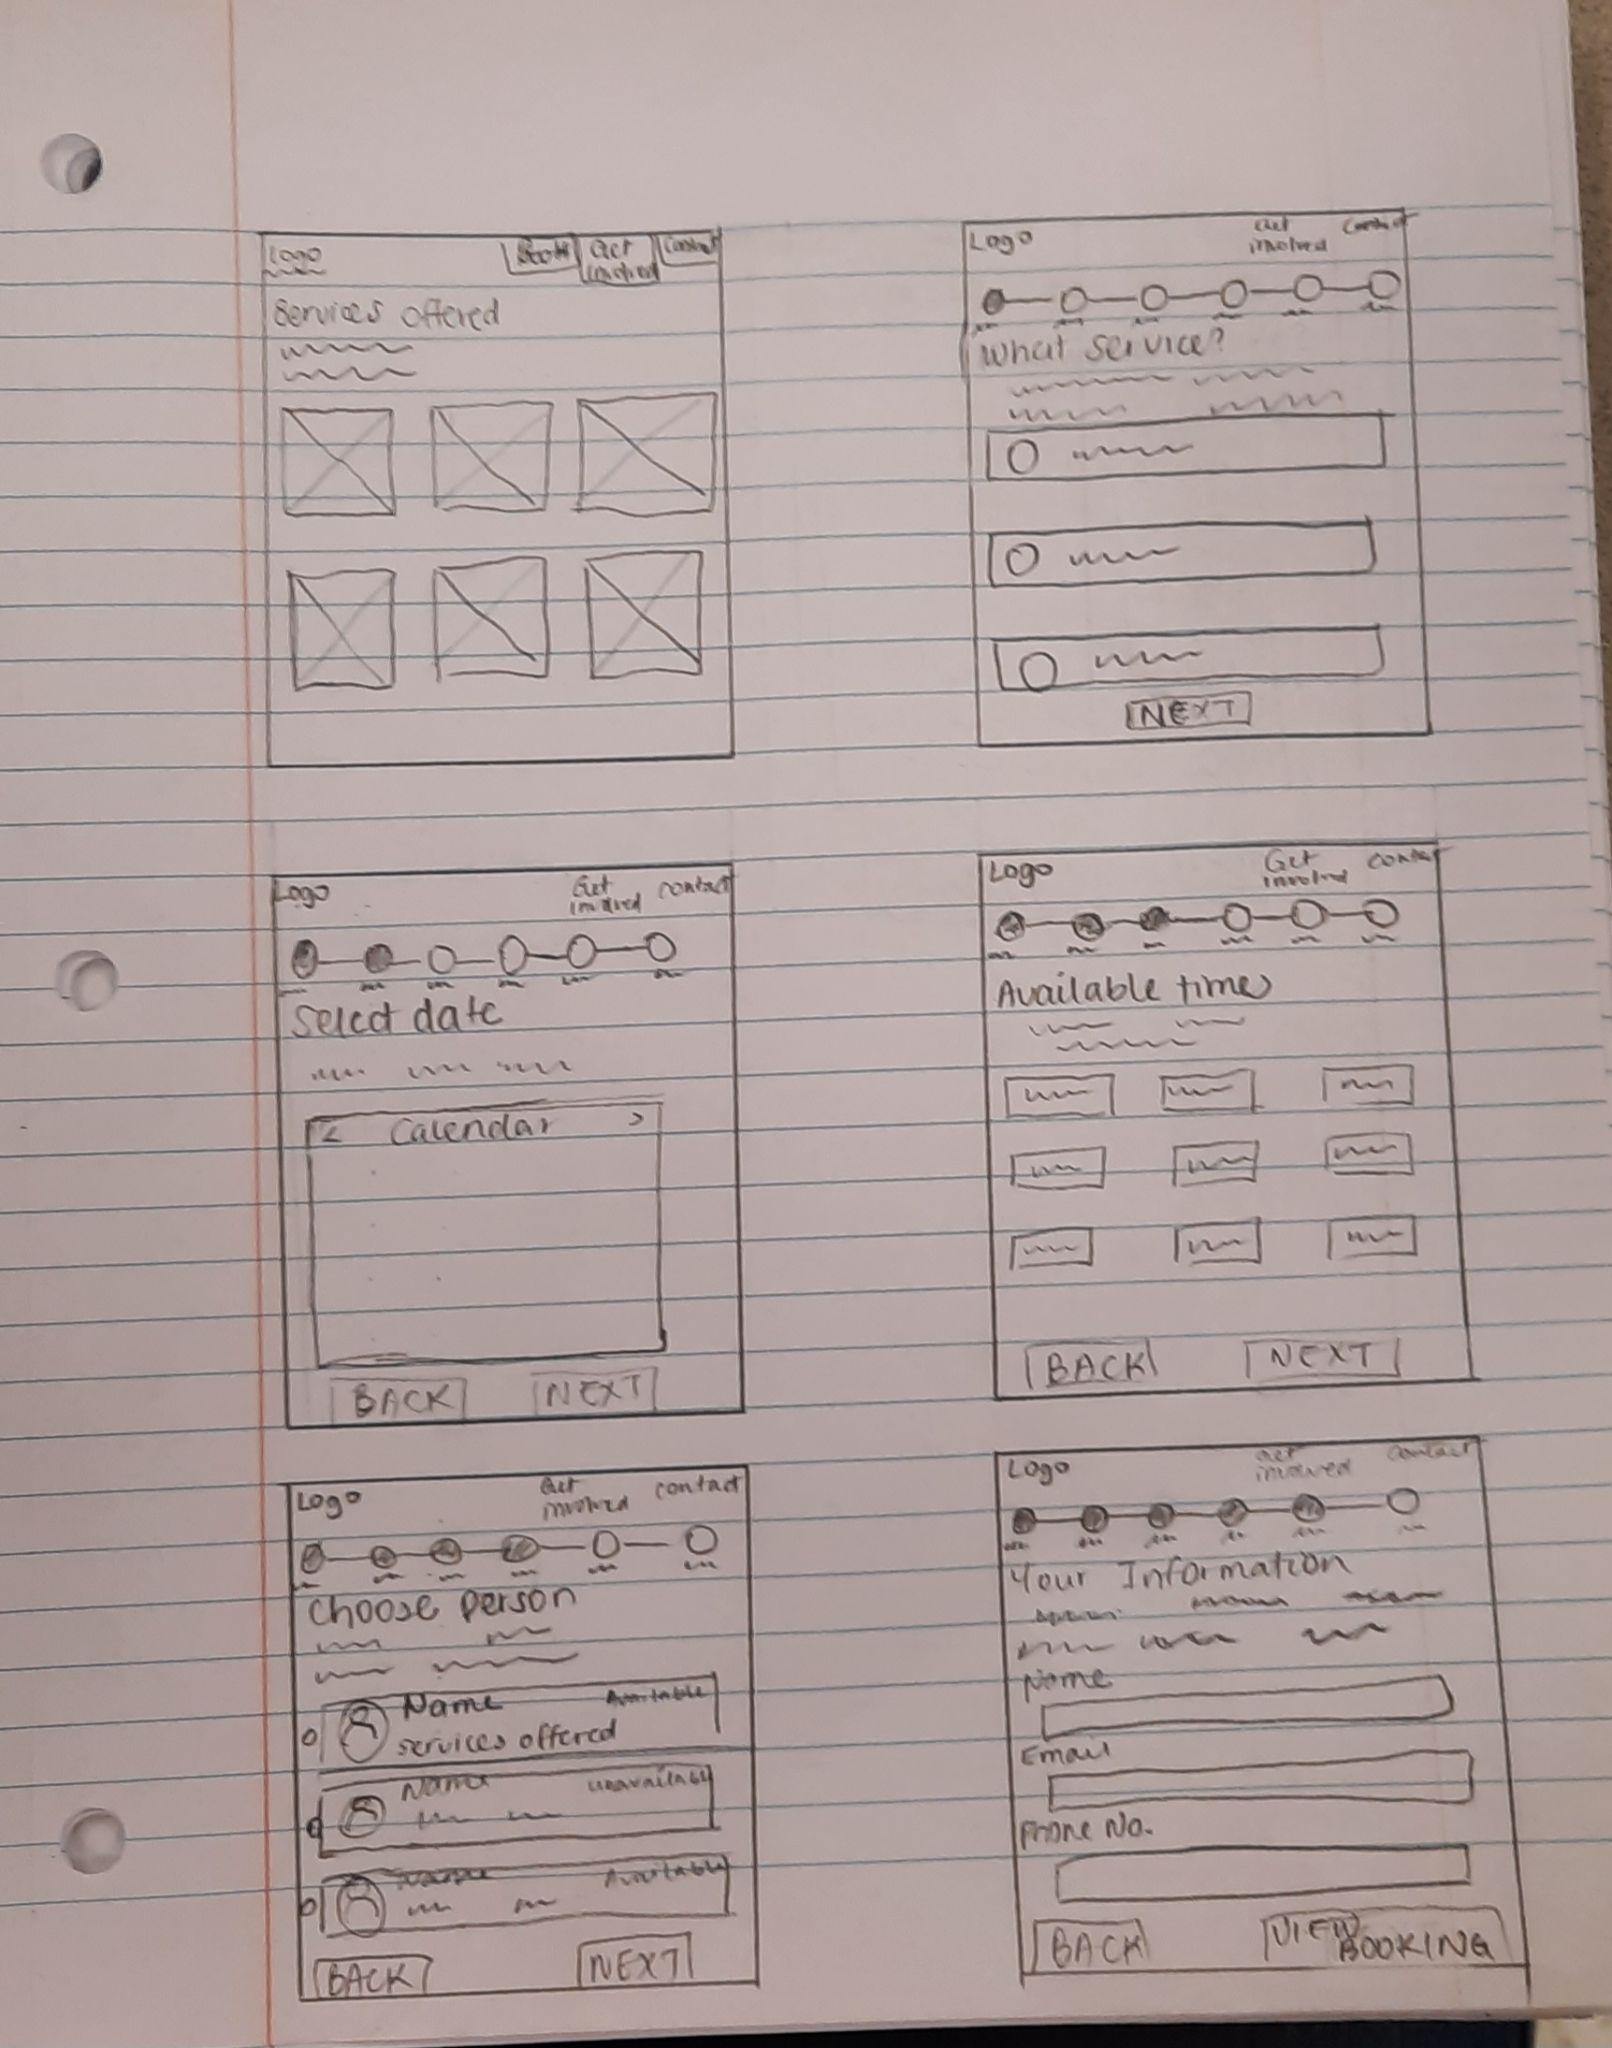 Logo
Book
Get
involved
Contact
Services offered
Logo
Get
involved
Contact
What service?
NEXT
Logo
Get
involved
contact
Select date
< Calendar >
BACK NEXT
Logo
Get
involved
contact
Available times
BACK NEXT
Logo
Get
involved
contact
Choose person
Name Available
services offered
Name unavailable
Name Available
BACK NEXT
Logo
Get
involved
contact
Your Information
Name
Email
Phone No.
BACK VIEW BOOKING